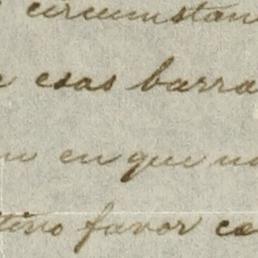 circunstan
esas barra
en que no
tino favor ca